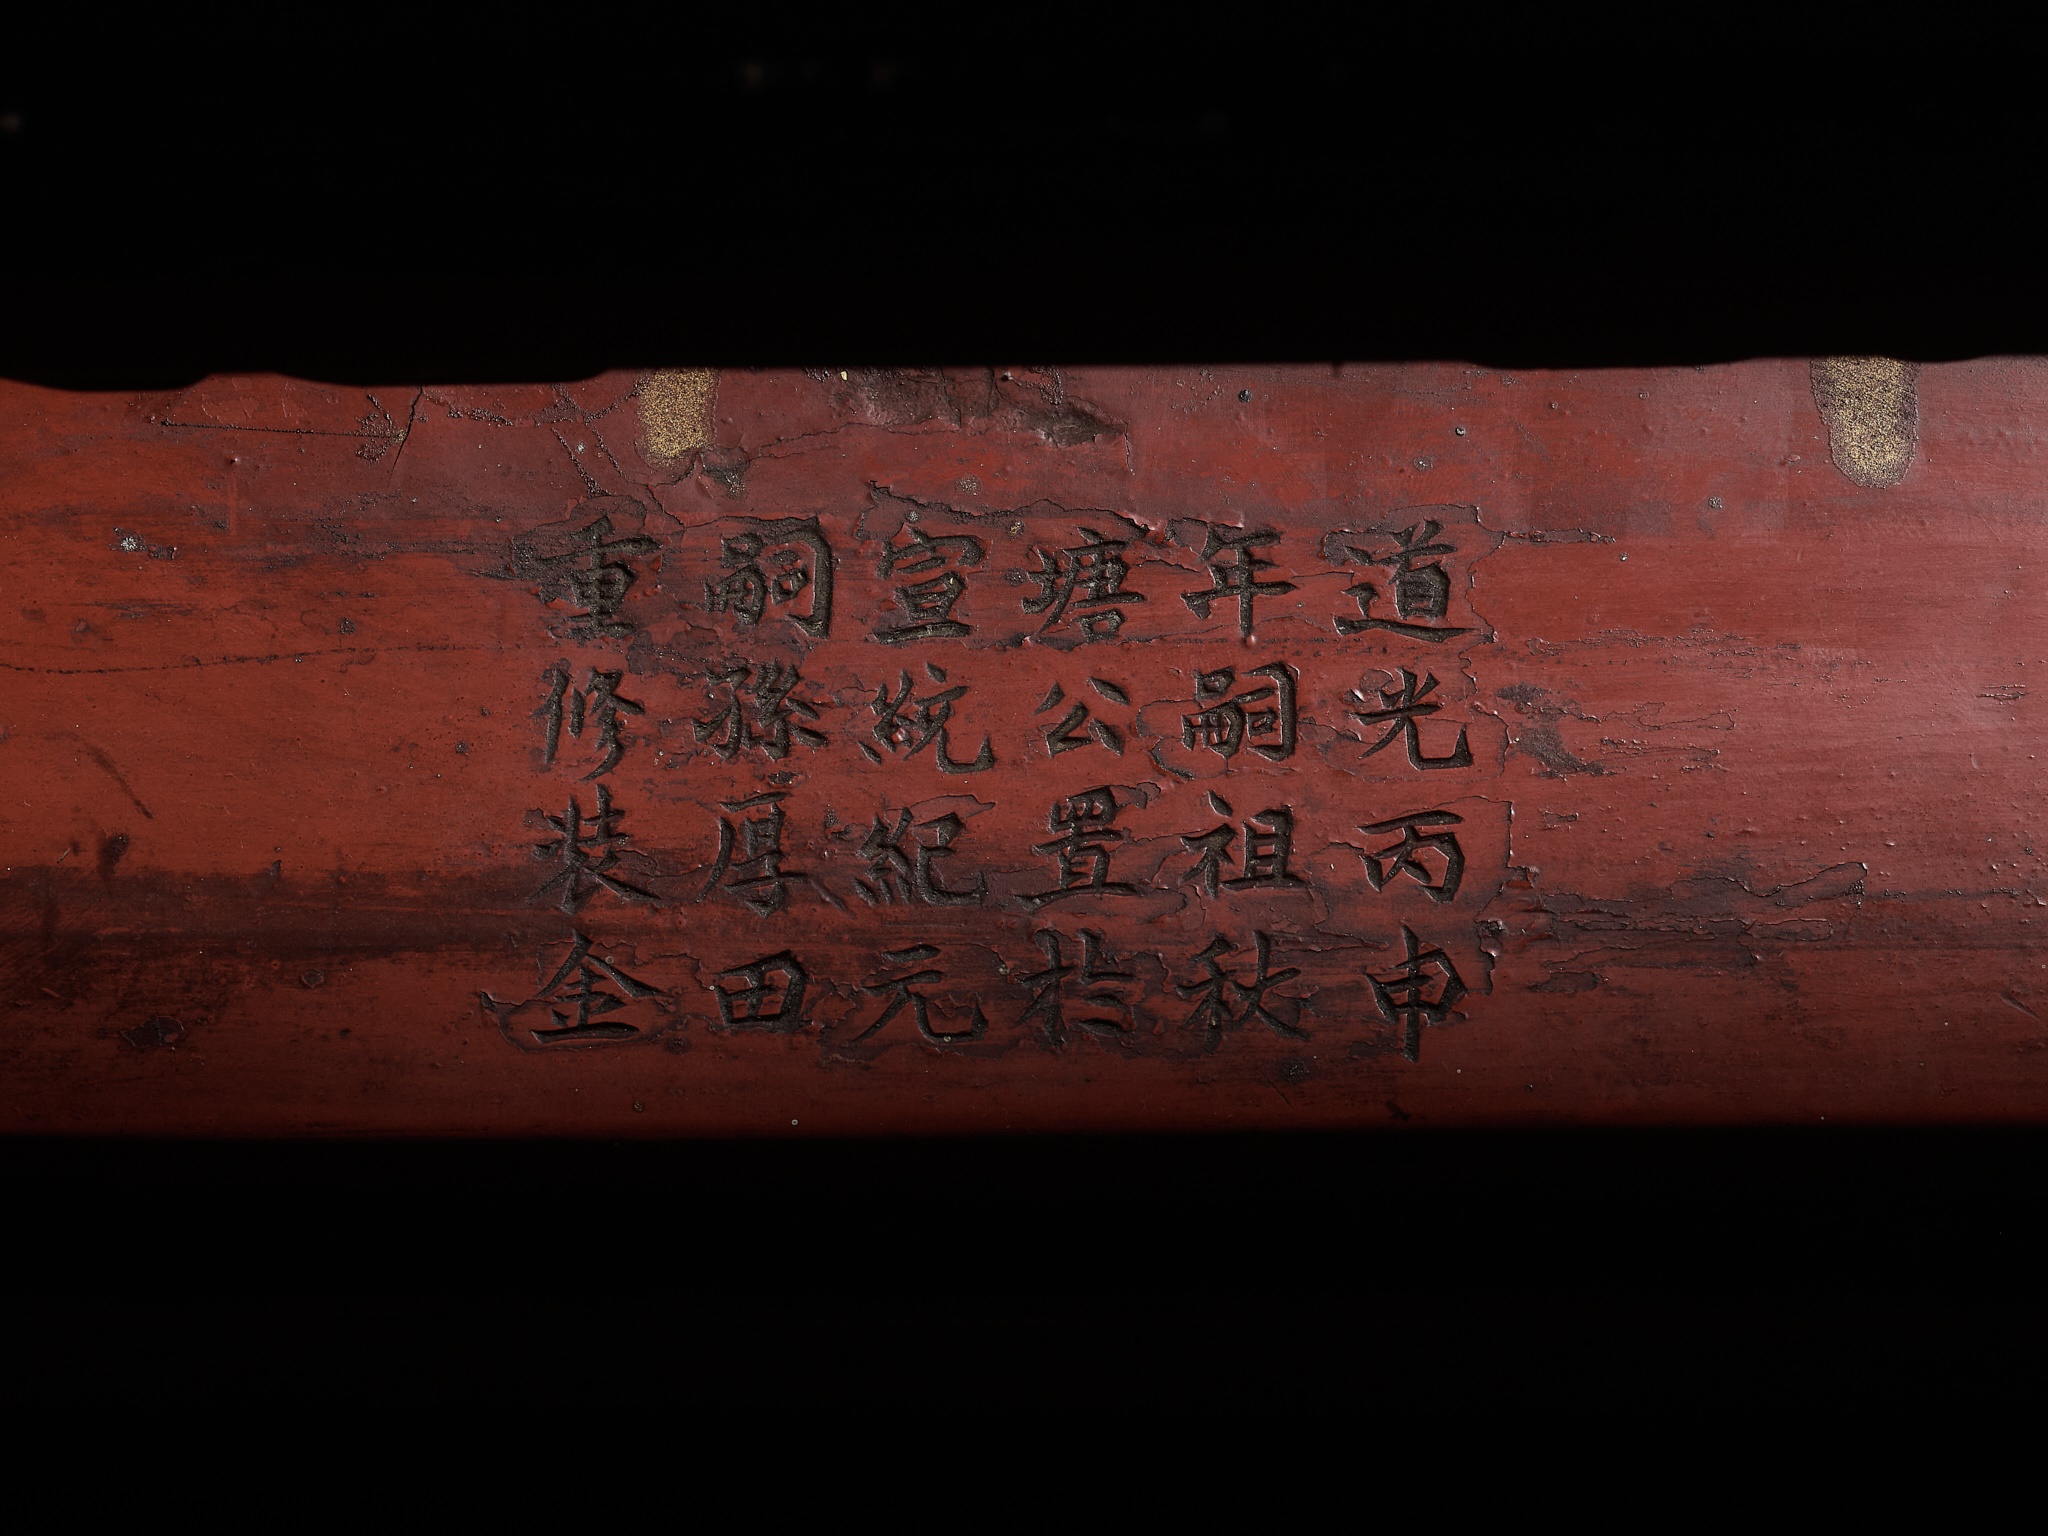 道光丙申
年嗣祖秋
塘公置扵
宣統紀元
嗣孫厚田
重修裝金